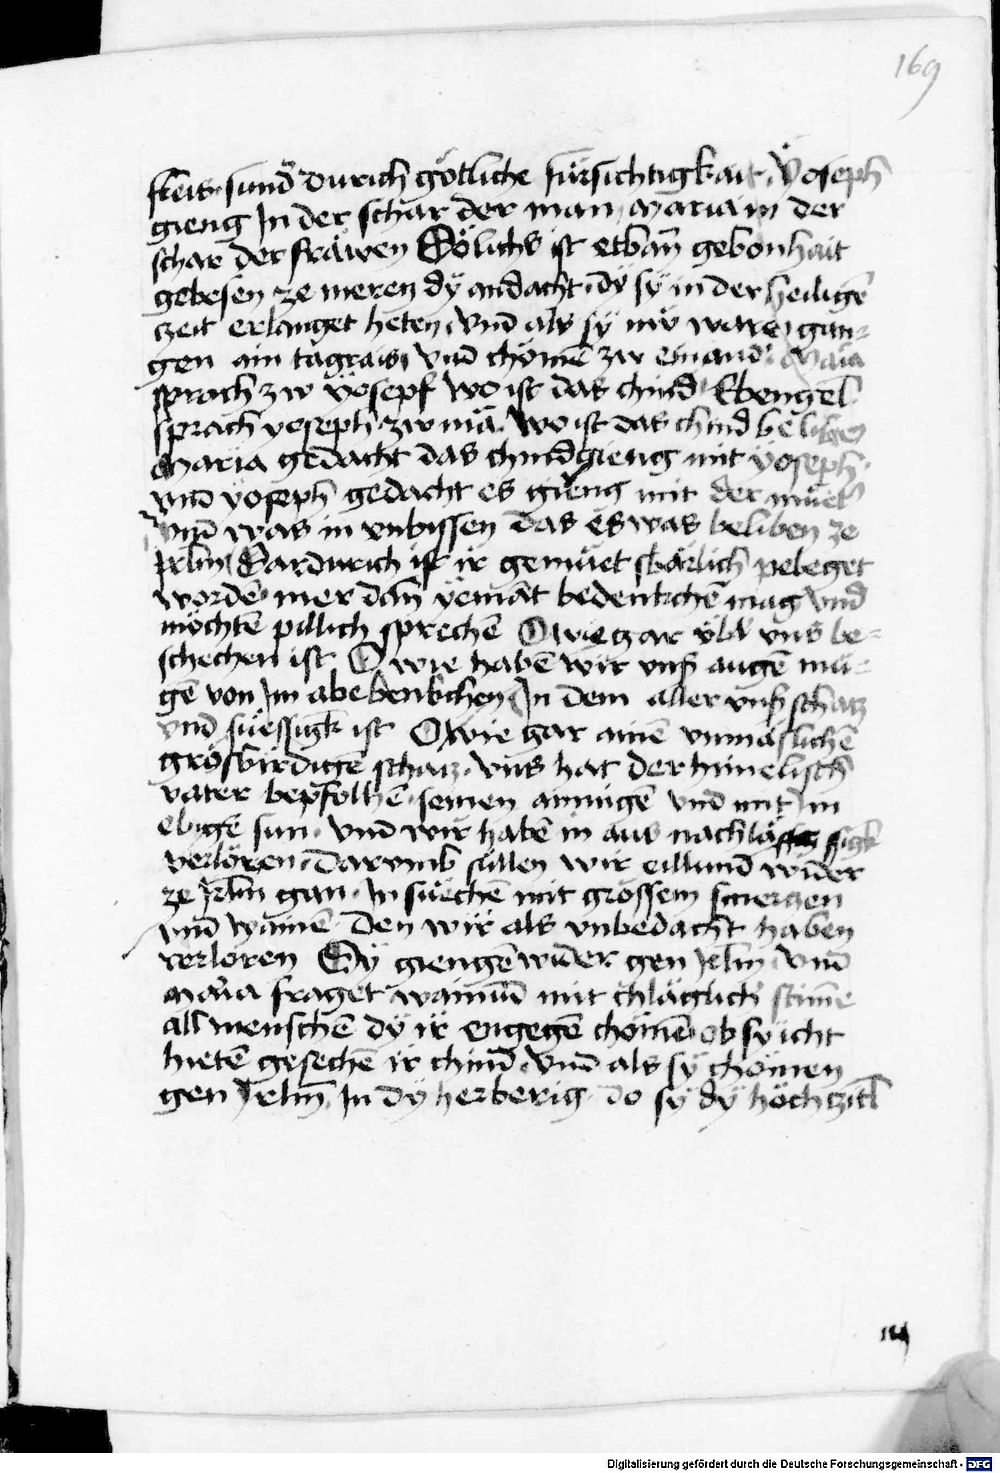 169
kteit · sund̄ durich götliche fürsichtigkait · Yoseph
gieng In der schar der man Maria in der
schar der fräwen Sölichs ist etban̄ gebonhait
gebesen ze meren dÿ andacht · dÿ sÿ in der heiligē
zeit erlanget heten · vnd als sÿ nw waren gan-
gen ain tagrais vnd chömē zw einand̄ Maria
sprach zw Yosepf wo ist das chind Ebengel
sprach yoseph · zw mā · Wo ist das chind beliben
Maria gedacht das chind gieng mit Yoseph ·
vnd Yoseph gedacht es gieng mit der müet̄
vnd was in vnbissen das es was beliben ze
Jrlm̄ Dardurich ist ir gemüet sbärlich pebeget
wordē · mer dan̄ yemāt bedenkchē mag vnd
möchtē pillich sprechē O wie gar übl vns be-
schechen ist O wie habē wir vnsr̄ augē mü-
gē von Im abebenkchen In dem aller vnsr̄ schatz
vnd süessigk ist O wie gar ainē vnmäslichē
grösbirdigē schatz · vns hat der himelisch
vater bepfolhē · seinen ainnigē vnd mit im
ebigē sun · vnd wir habē in aus nachlässigk
verlören · Darvmb süllen wir eillund wider
ze Jrlm̄ gan · In süechē mit grössem smerczen
vnd wainē · Den wir als vnbedacht haben
verloren Sÿ giengē wider gen Jrlm̄ · vnd
Maria fraget wainund mit chläglich̄ stim̄e
all menschē dÿ ir engegē chömē · ob sÿ icht
hietē gesechē ir chind · vnd als sÿ chömen
gen Jrlm̄ · In dÿ herberig · do sÿ dÿ höchzitl
Digitalisierung gefördert durch die Deutsche Forschungsgemeinschaft - DFG